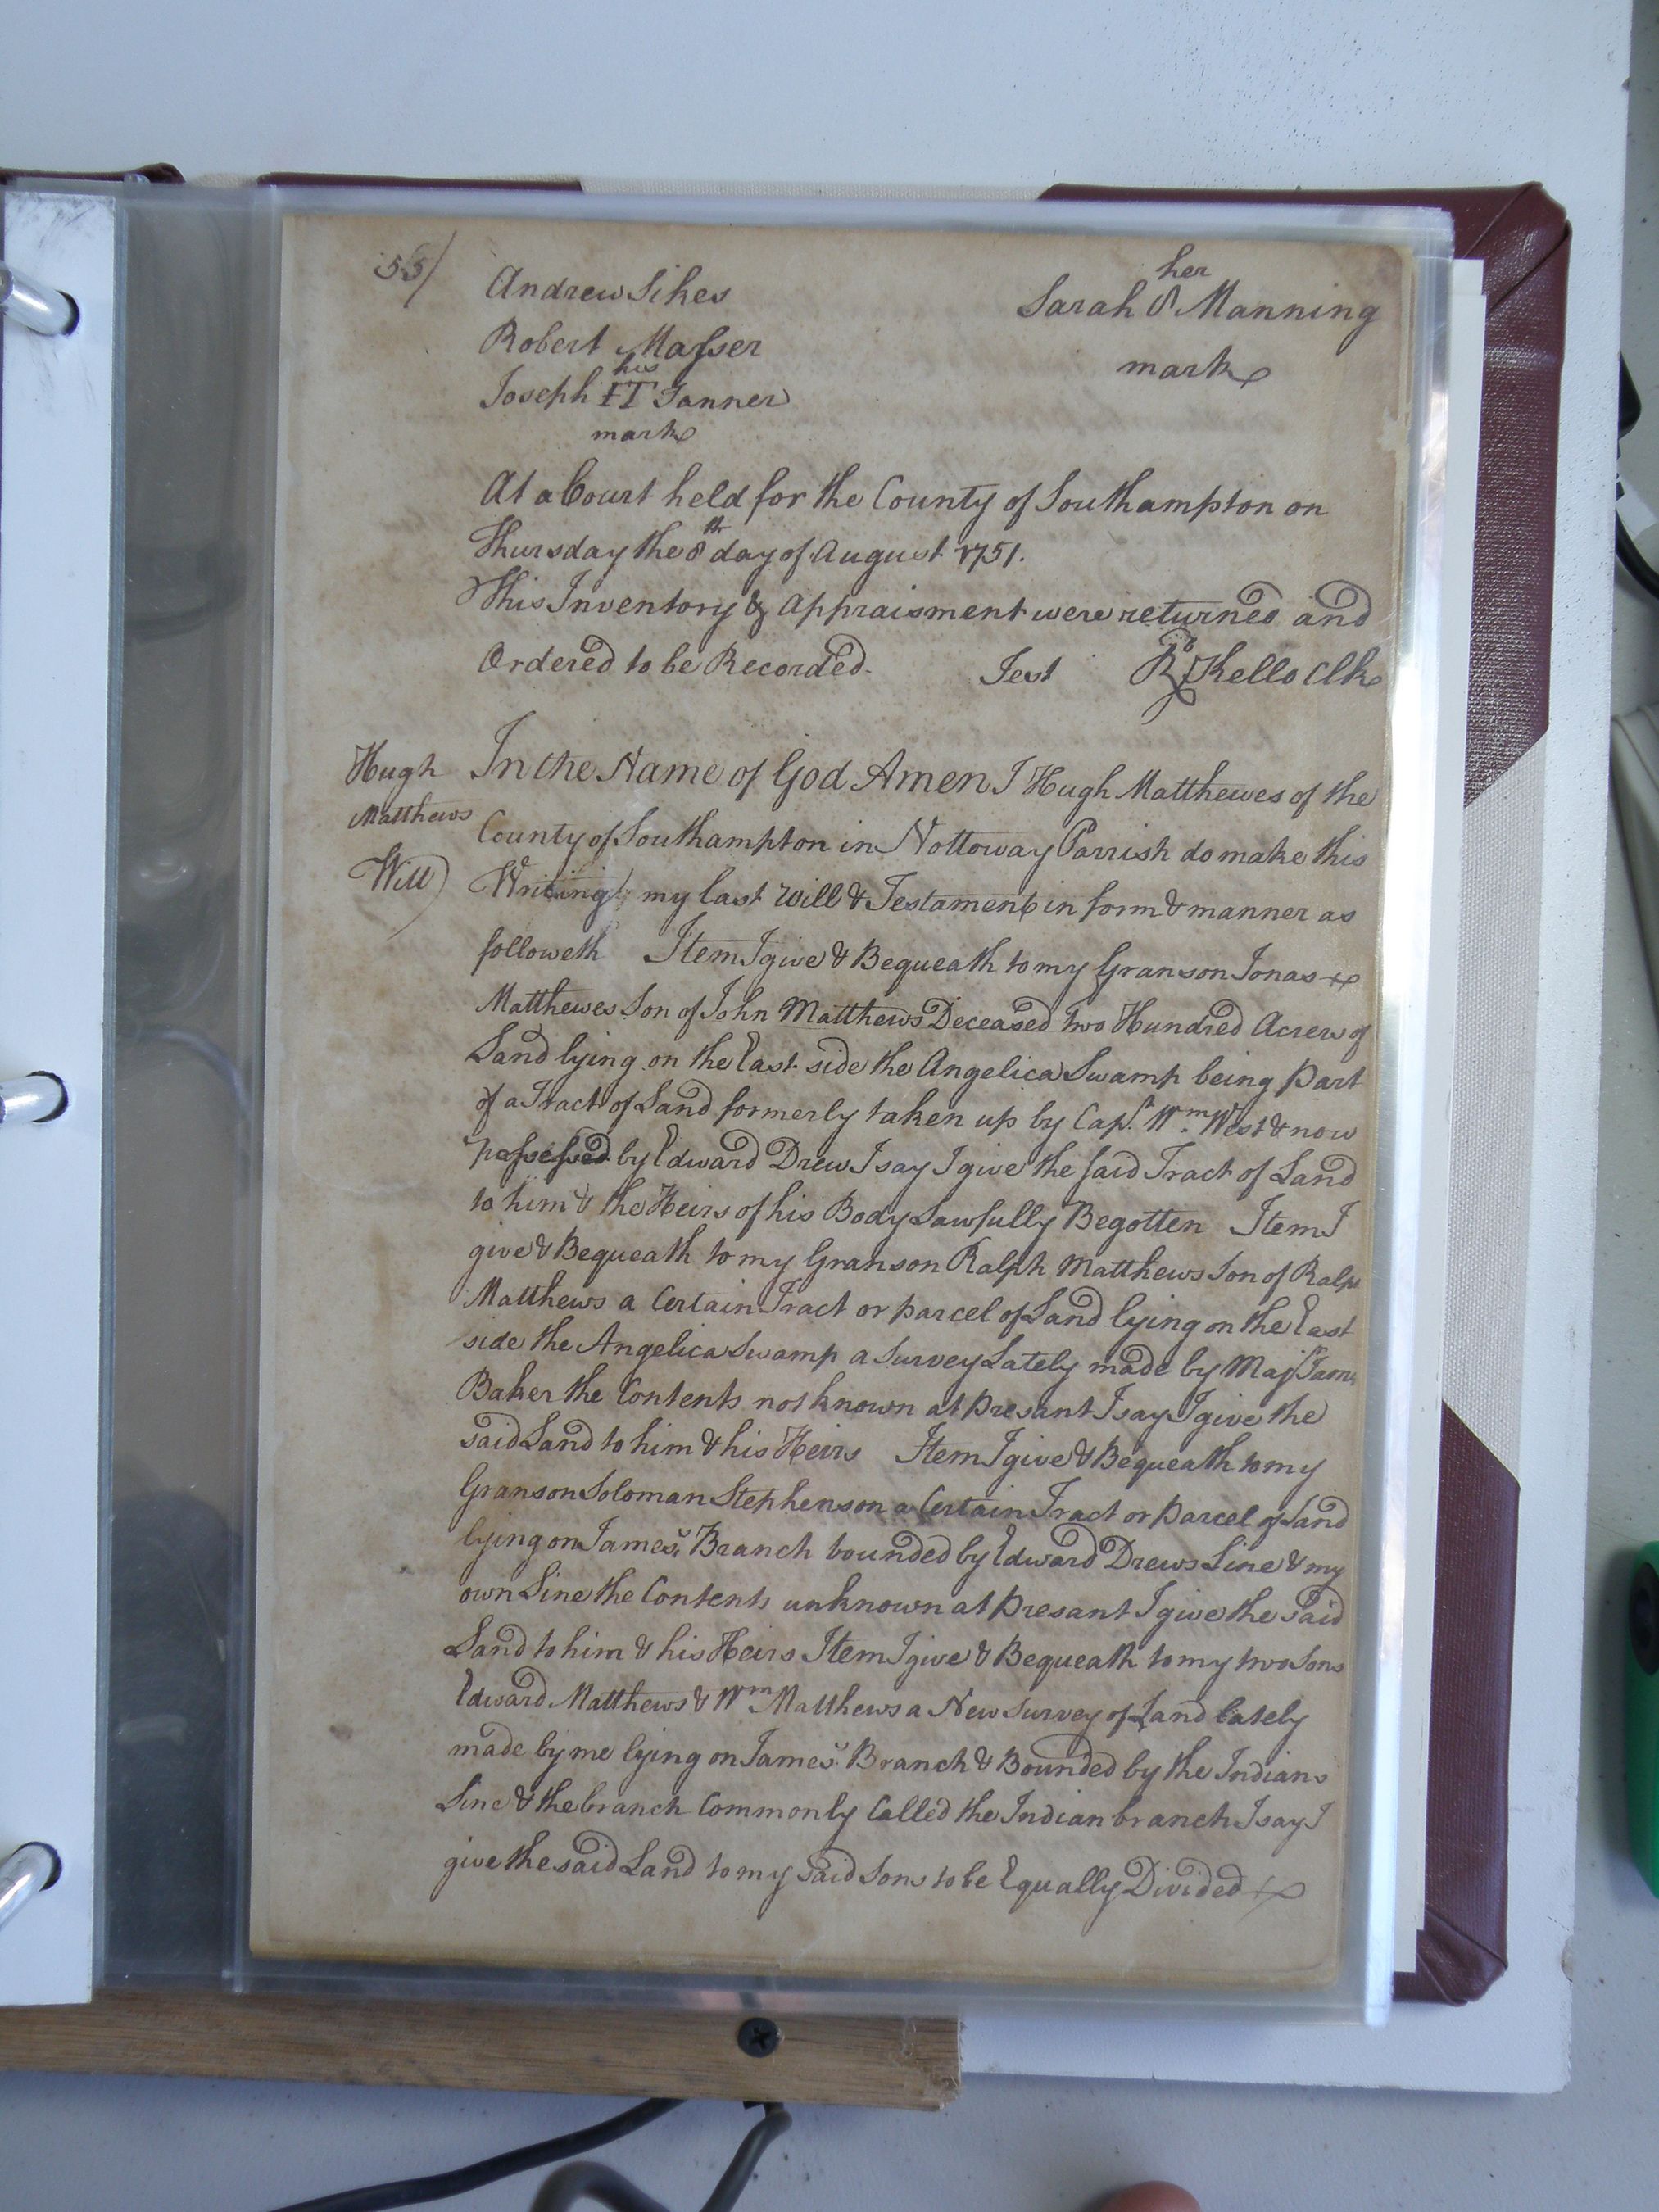 55/
Andrew Sikes
her
Sarah 8 Manning
mark
Robert Masser
his
Joseph IT Tanner
mark
At a Court held for the County of Southampton on
Thursday the 8th day of August 1751.
This Inventory & Appraisment were returned and
Ordered to be Recorded.
Test Rd Kello Clk
Hugh
Matthews
Will
In the Name of God Amen I Hugh Matthewes of the
County of Southampton in Nottoway Parrish do make this
Writing my last Will & Testament in form & manner as
followeth Item I give & Bequeath to my Granson Jonas
Matthewes Son of John Matthews Deceased two Hundred Acres of
Land lying on the East side the Angelica Swamp being part
of a Tract of Land formerly taken up by Capt. Wm. West & now
possessed by Edward Drew I say I give the said Tract of Land
to him & the Heirs of his Body Lawfully Begotten Item I
give & Bequeath to my Granson Ralph Matthews Son of Ralph
Matthews a Certain Tract or parcel of Land lying on the East
side the Angelica Swamp a Survey Lately made by Majr
Baker the Contents not known at Presant I say I give the
said Land to him & his Heirs Item I give & Bequeath to my
Granson Soloman Stephenson a Certain Tract or Parcel of Land
lying on James's Branch bounded by Edward Drews Line & my
own Line the Contents unknown at Presant I give the said
Land to him & his Heirs Item I give & Bequeath to my two Sons
Edward Matthews & Wm Matthews a New Survey of Land lately
made by me lying on James's Branch & Bounded by the Indians
Line & the branch Commonly Called the Indian branch I say I
give the said Land to my said Sons to be Equally Divided